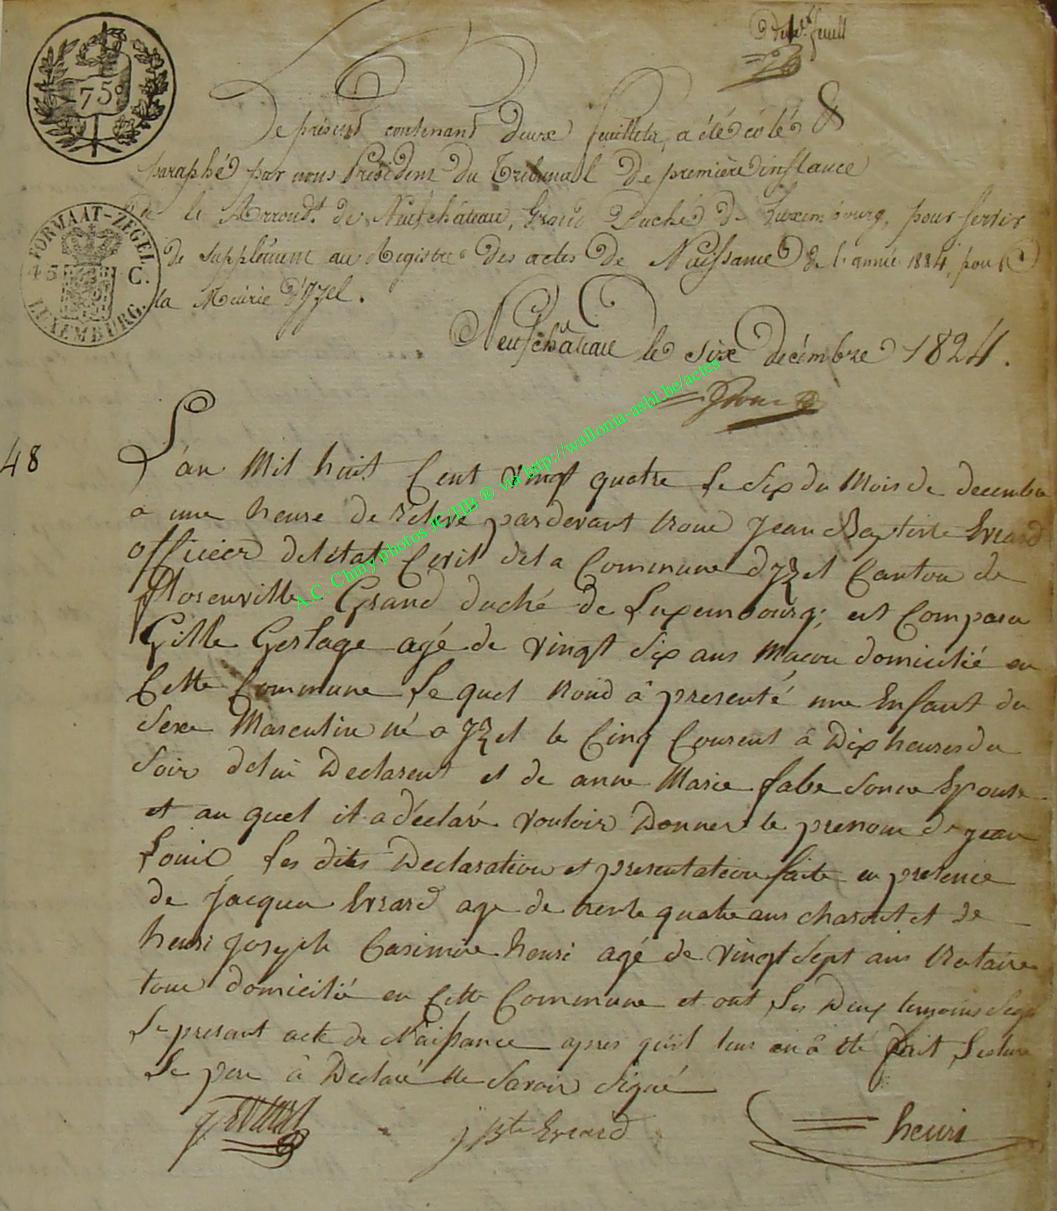 75c
FORMAAT-ZEGEL
45 C.
LUXEMBURG.
Le présent contenant deux feuillets, a été coté &
paraphé par nous Président du Tribunal de première instance
de l'Arrondt. de Neufchâteau, Grand Duché de Luxembourg, pour servir
de supplément au Registre des actes de Naissance de l'année 1824, pour
la Mairie d'Yzel.
Neufchâteau le six décembre 1824.
48
L'an Mil huit Cent vingt quatre Le Six du Mois de decembre
a une heure de relevé pardevant nous Jean Baptiste Evrard
officier deletat Civil dela Commune dyzel Canton de
florenville Grand duché de Luxembourg; est Comparu
Gille Gerlage agé de vingt Six ans Macon domicilié en
Cette Commune Le quel nous à presenté une Enfant du
Sexe Masculin né a yzel le Cinq Courent à Dix heures du
Soir delui Declarent et de anne Marie fabe Sonne Epouse
et au quel il a déclaré vouloir Donner le prenom de jean
Louis Les dites Declaration et presentation faite en presence
de Jacques Evrard age de trente quatre ans charont et de
henri Joseph Casimire henri agé de vingt Sept ans Notaire
tous domicilié en Cette Commune et ont Les Deux temoins Signé
Le presant acte de Naissance apres qu'il leur en à été fait Lecture
Le pere à Declaré ne Savoir Signé
J Evrard
j Bte Evrard
henri
A.C. Chiny photos IGHB ® via http://wallonia-asbl.be/actes